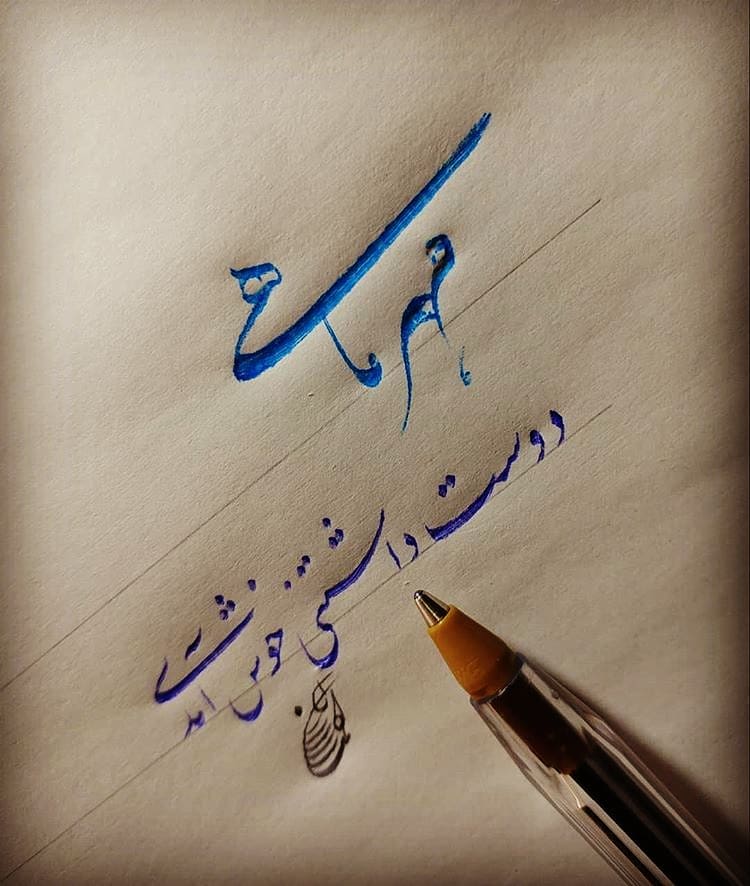 مهر ماه
دوست داشتنی خوش امدی